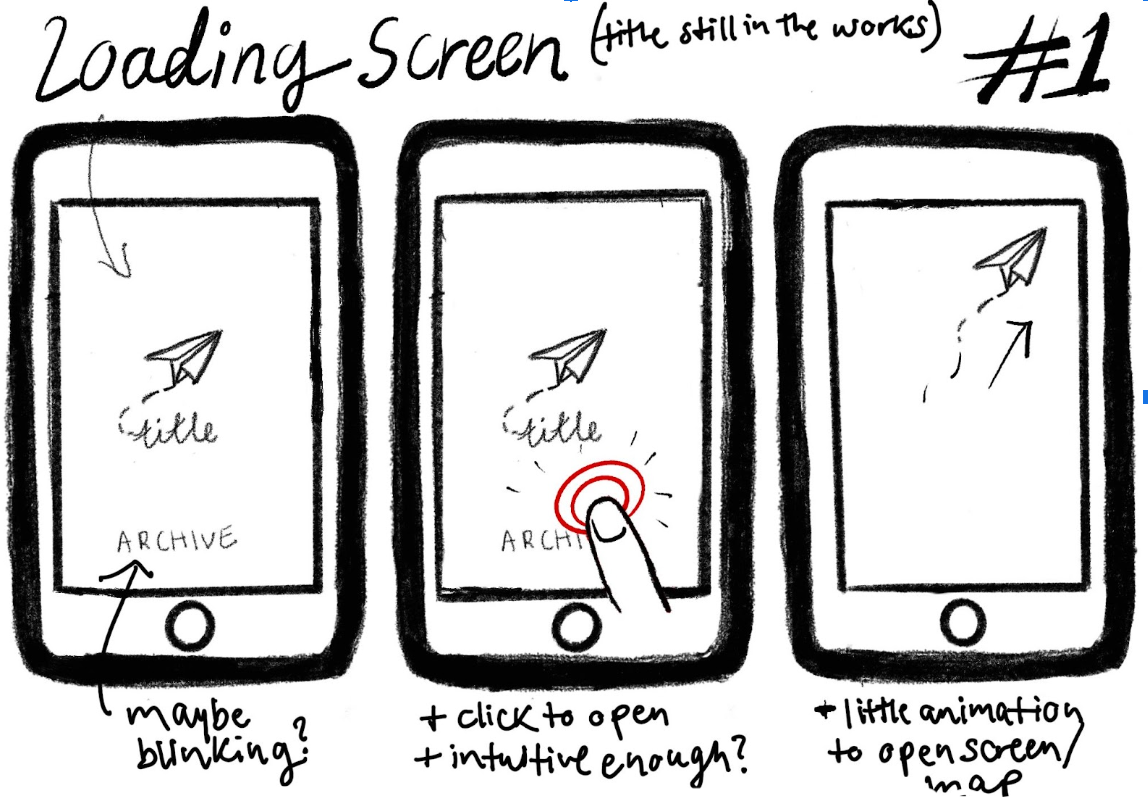 Loading Screen (title still in the works) #1
title
ARCHIVE
title
ARCHI
maybe
blinking?
+ click to open
+ intuitive enough?
+ little animation
to open screen/
map